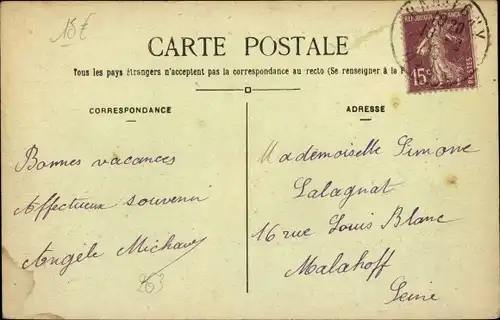 15E
CARTE POSTALE
Tous les pays étrangers n'acceptent pas la correspondance au recto (Se renseigner à la
CORRESPONDANCE
ADRESSE
15c
POSTES
Bonnes vacances
Affectueux souvenir
Angèle
Mademoiselle Simone
Lalagnat
16 rue Louis Blanc
Malakoff
Seine
263